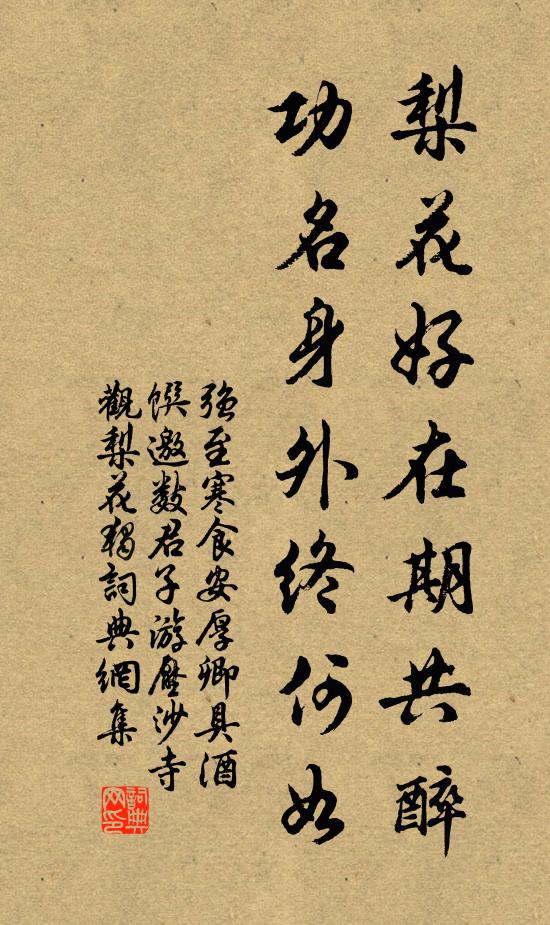 梨花好在期共醉
功名身外终何如
强至寒食安厚卿具酒
馔邀数君子游压沙寺
觀梨花独詞典網集
詞典网印